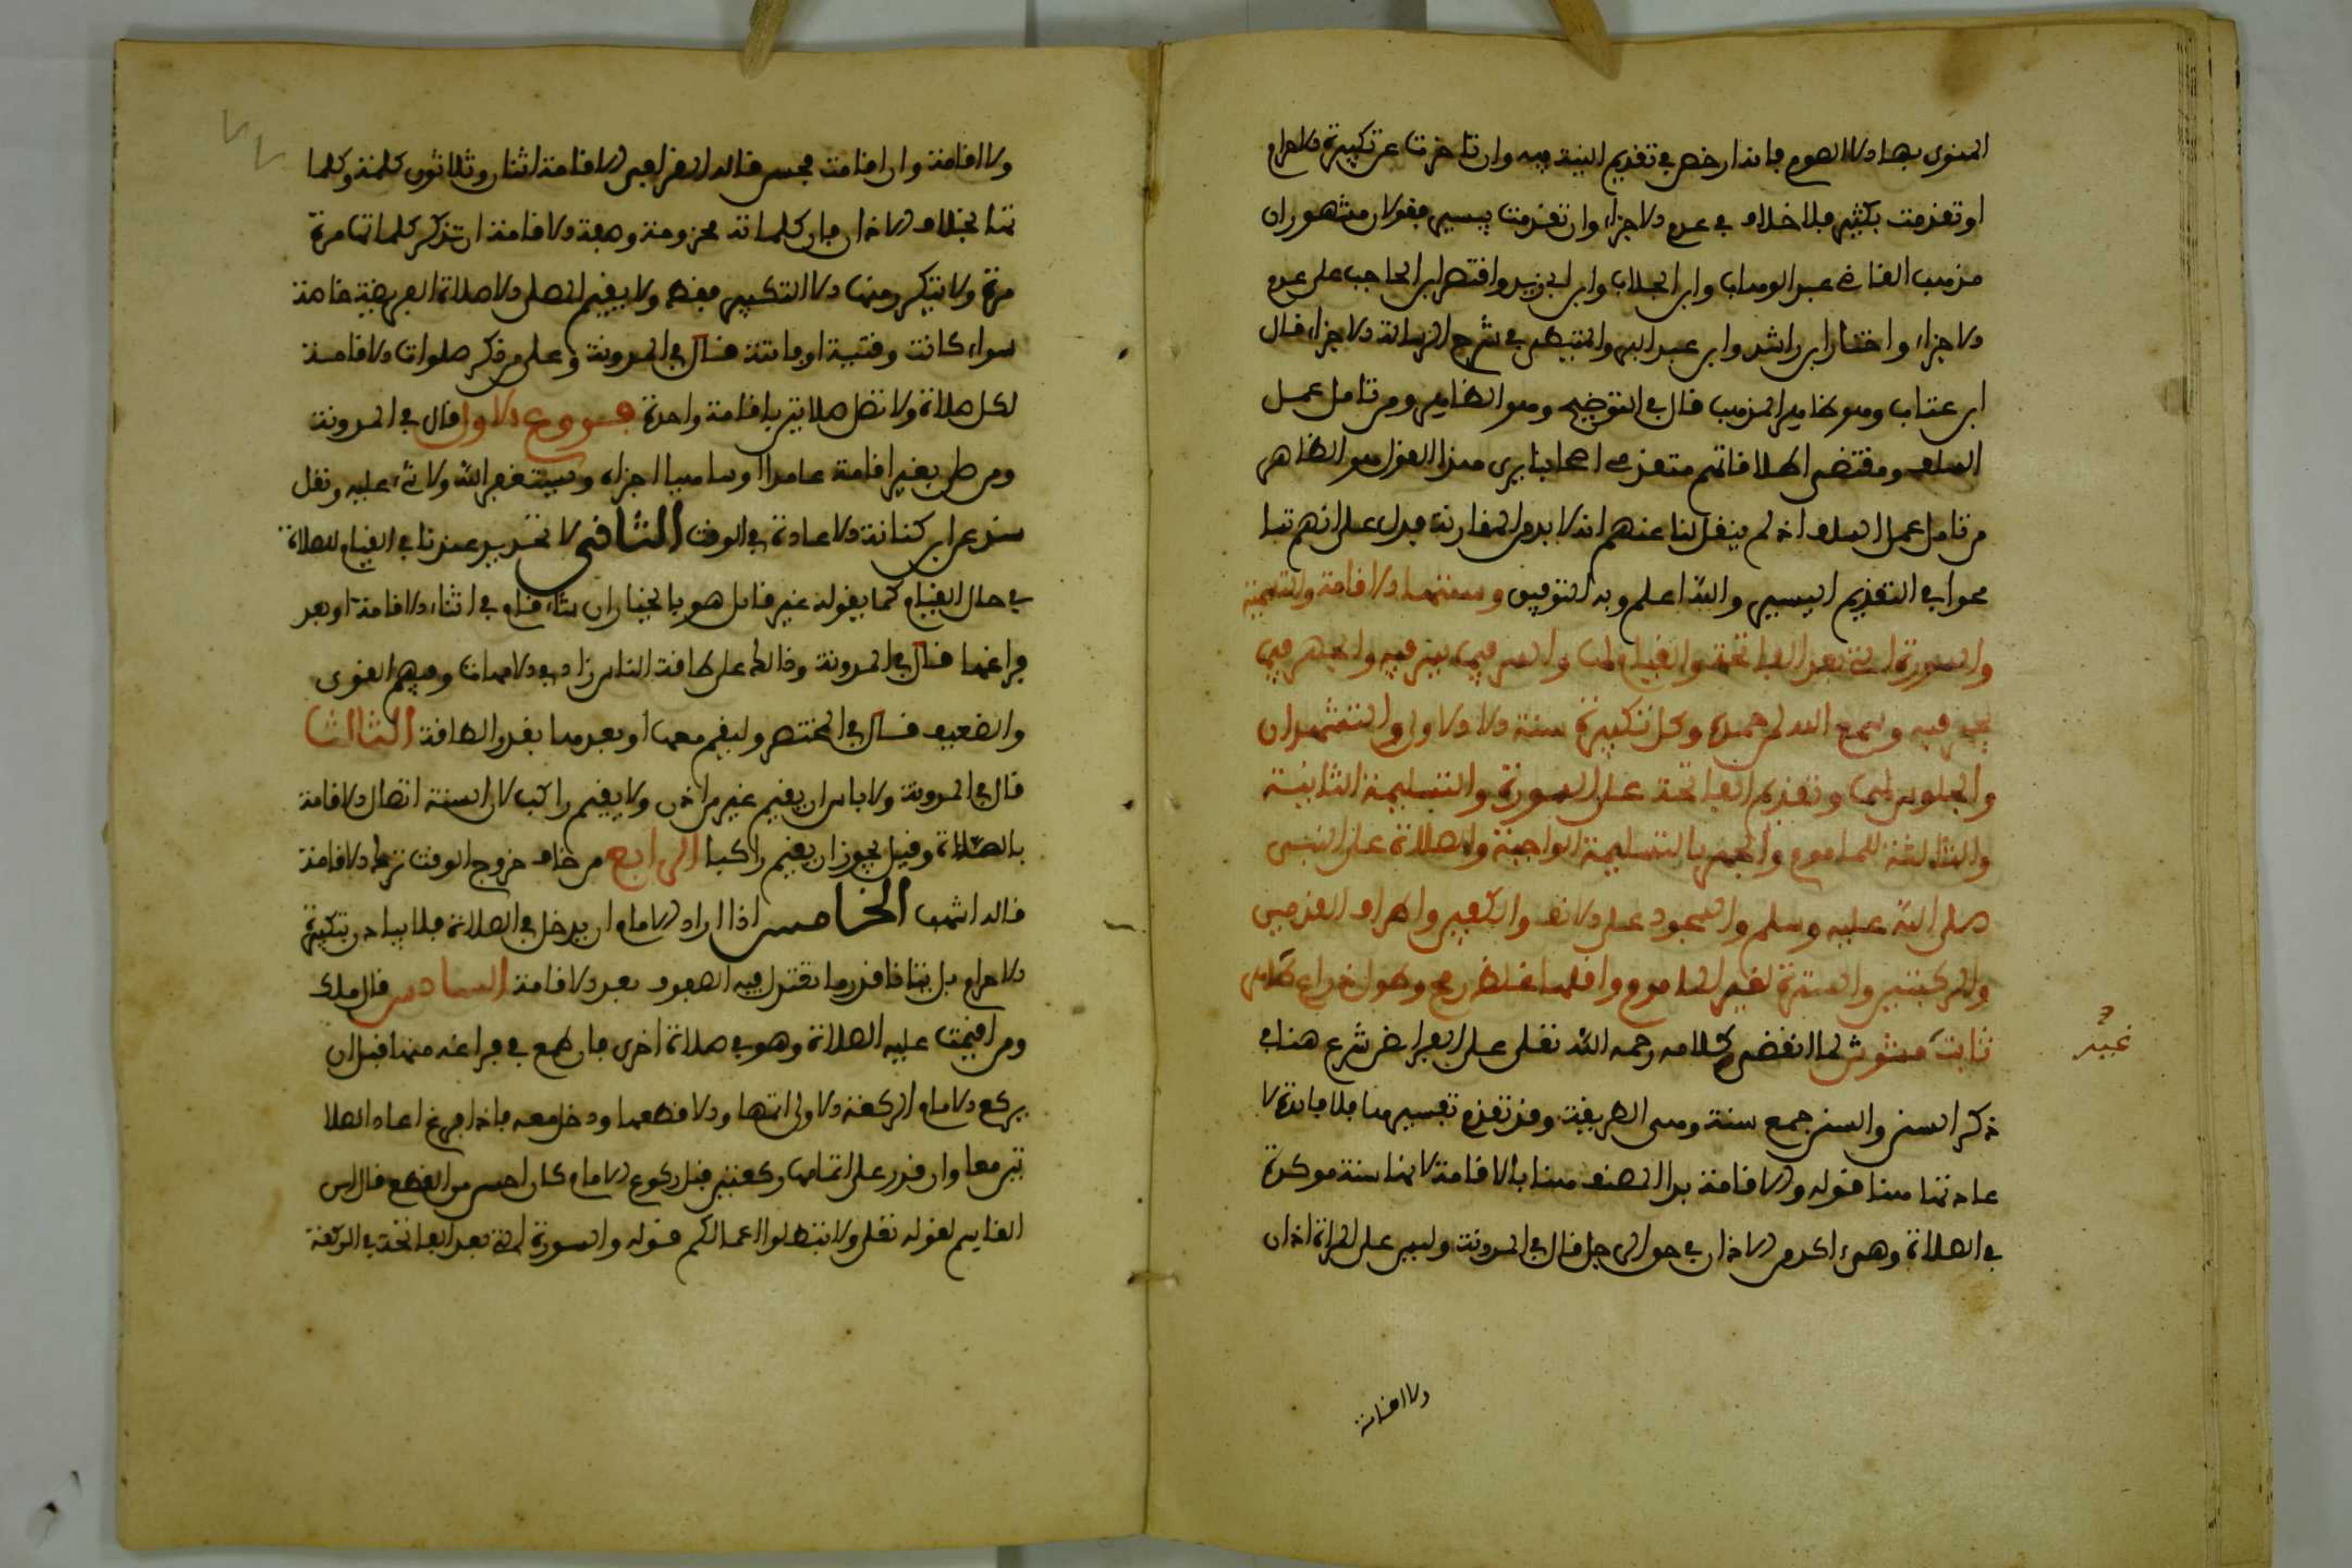 المنوى بها الا الصوم فانه ارخص في تقديم النية فيه وان تاخرت عن تكبيرة الاحرام
او تقدمت بكثير فلا خلاف في عدم الاجزاء وان تقدمت بيسير فقولان مشهوران
مذهب القاضي عبد الوهاب وابن الجلاب وابن ابي زيد واقتصر ابن الحاجب على عدم
الاجزاء واختار ابن راشد وابن عبد البر والشبيبي في شرح الرسالة الاجزاء قال
ابن عتاب وهو ظاهر المذهب قال في التوضيح وهو الظاهر ومن تامل عمل
السلف ومقتضى اطلاقاتهم متقدمي اصحابنا يرى هذا القول هو الظاهر
من تامل عمل السلف اذ لم ينقل لنا عنهم انه لا بد من المقارنة فدل على انهم تسا
محوا في التقديم اليسير والله اعلم وبه التوفيق وسننها الاقامة
والسورة التي بعد الفاتحة والقيام لها والسر فيما يسر فيه والجهر فيما
يجهر فيه وسمع الله لمن حمده وكل تكبيرة سنة الا الاولى والتشهدان
والجلوس لهما وتقديم الفاتحة على السورة والتسليمة الثانية
والثالثة للماموم والجهر بالتسليمة الواجبة والصلاة على النبي
صلى الله عليه وسلم والسجود على الانف والكفين واطراف القدمين
والركبتين والسترة لغير الماموم واقلها غلظ رمح وطول ذراع طاهر
ثابت مشوش لما انقضى كلامه رحمه الله تعلى على الفرائض شرع هنا في
غير
ذكر السنن والسنن جمع سنة وهي الطريقة وقد تقدم تفسيرها فلا فايدة لا
عادتها هنا قوله والاقامة بدا المصنف هنا بالاقامة لانها سنة موكدة
في الصلاة وهي اكد من الاذان في حق الرجل قال في المدونة وليس على المراة اذان
ولا اقامة
ولا اقامة وان اقامت فحسن قاله ابن القاسم الاقامة اثنان وثلاثون كلمة وكلما
تها بخلاف الاذان فان كلماته مجزومة وصفة الاقامة ان تذكر كلماتها مرة
مرة ولا يتكرر منها الا التكبير فقط ولا يقيم المصلي الا صلاة الفريضة خاصة
سواء كانت وقتية او فايتة قال في المدونة وعلى من ذكر صلوات الاقامة
لكل صلاة ولا تصل صلاتين باقامة واحدة فروع الاول قال في المدونة
ومن صلى بغير اقامة عامدا او ساهيا اجزاه ويستغفر الله ولا شيء عليه ونقل
سند عن ابن كنانة الاعادة في الوقت الثاني لا تحديد عندنا في القيام للصلاة
في حال القيام كما يقوله غير قائل هو بالخيار ان شاء قام في اثناء الاقامة او بعد
فراغها قال في المدونة وذالك على طاقة الناس
والضعيف قال في المختصر وليقم معها او بعدها بقدر الطاقة الثالث
قال في المدونة ولا باس ان يقيم غير من اذن ولا يقيم راكب لان السنة اتصال الاقامة
بالصلاة وقيل يجوز ان يقيم راكبا الرابع من خاف خروج الوقت ترك الاقامة
قاله اشهب الخامس اذا اراد الامام ان يدخل في الصلاة فلا يبادر بتكبيرة
الاحرام بل يتانا قدر ما تعتدل فيه الصفوف بعد الاقامة السادس قال ملك
ومن اقيمت عليه الصلاة وهو في صلاة اخرى فان طمع في فراغه منها قبل ان
يركع الامام الركعة الاولى اتمها والا قطعها ودخل معه فاذا فرغ اعاد الصلا
تين معا وان قدر على اتمام ركعتين قبل ركوع الامام كان احسن من القطع قال ابن
القاسم لقوله تعلى ولا تبطلوا اعمالكم قوله والسورة التي بعد الفاتحة في الركعة